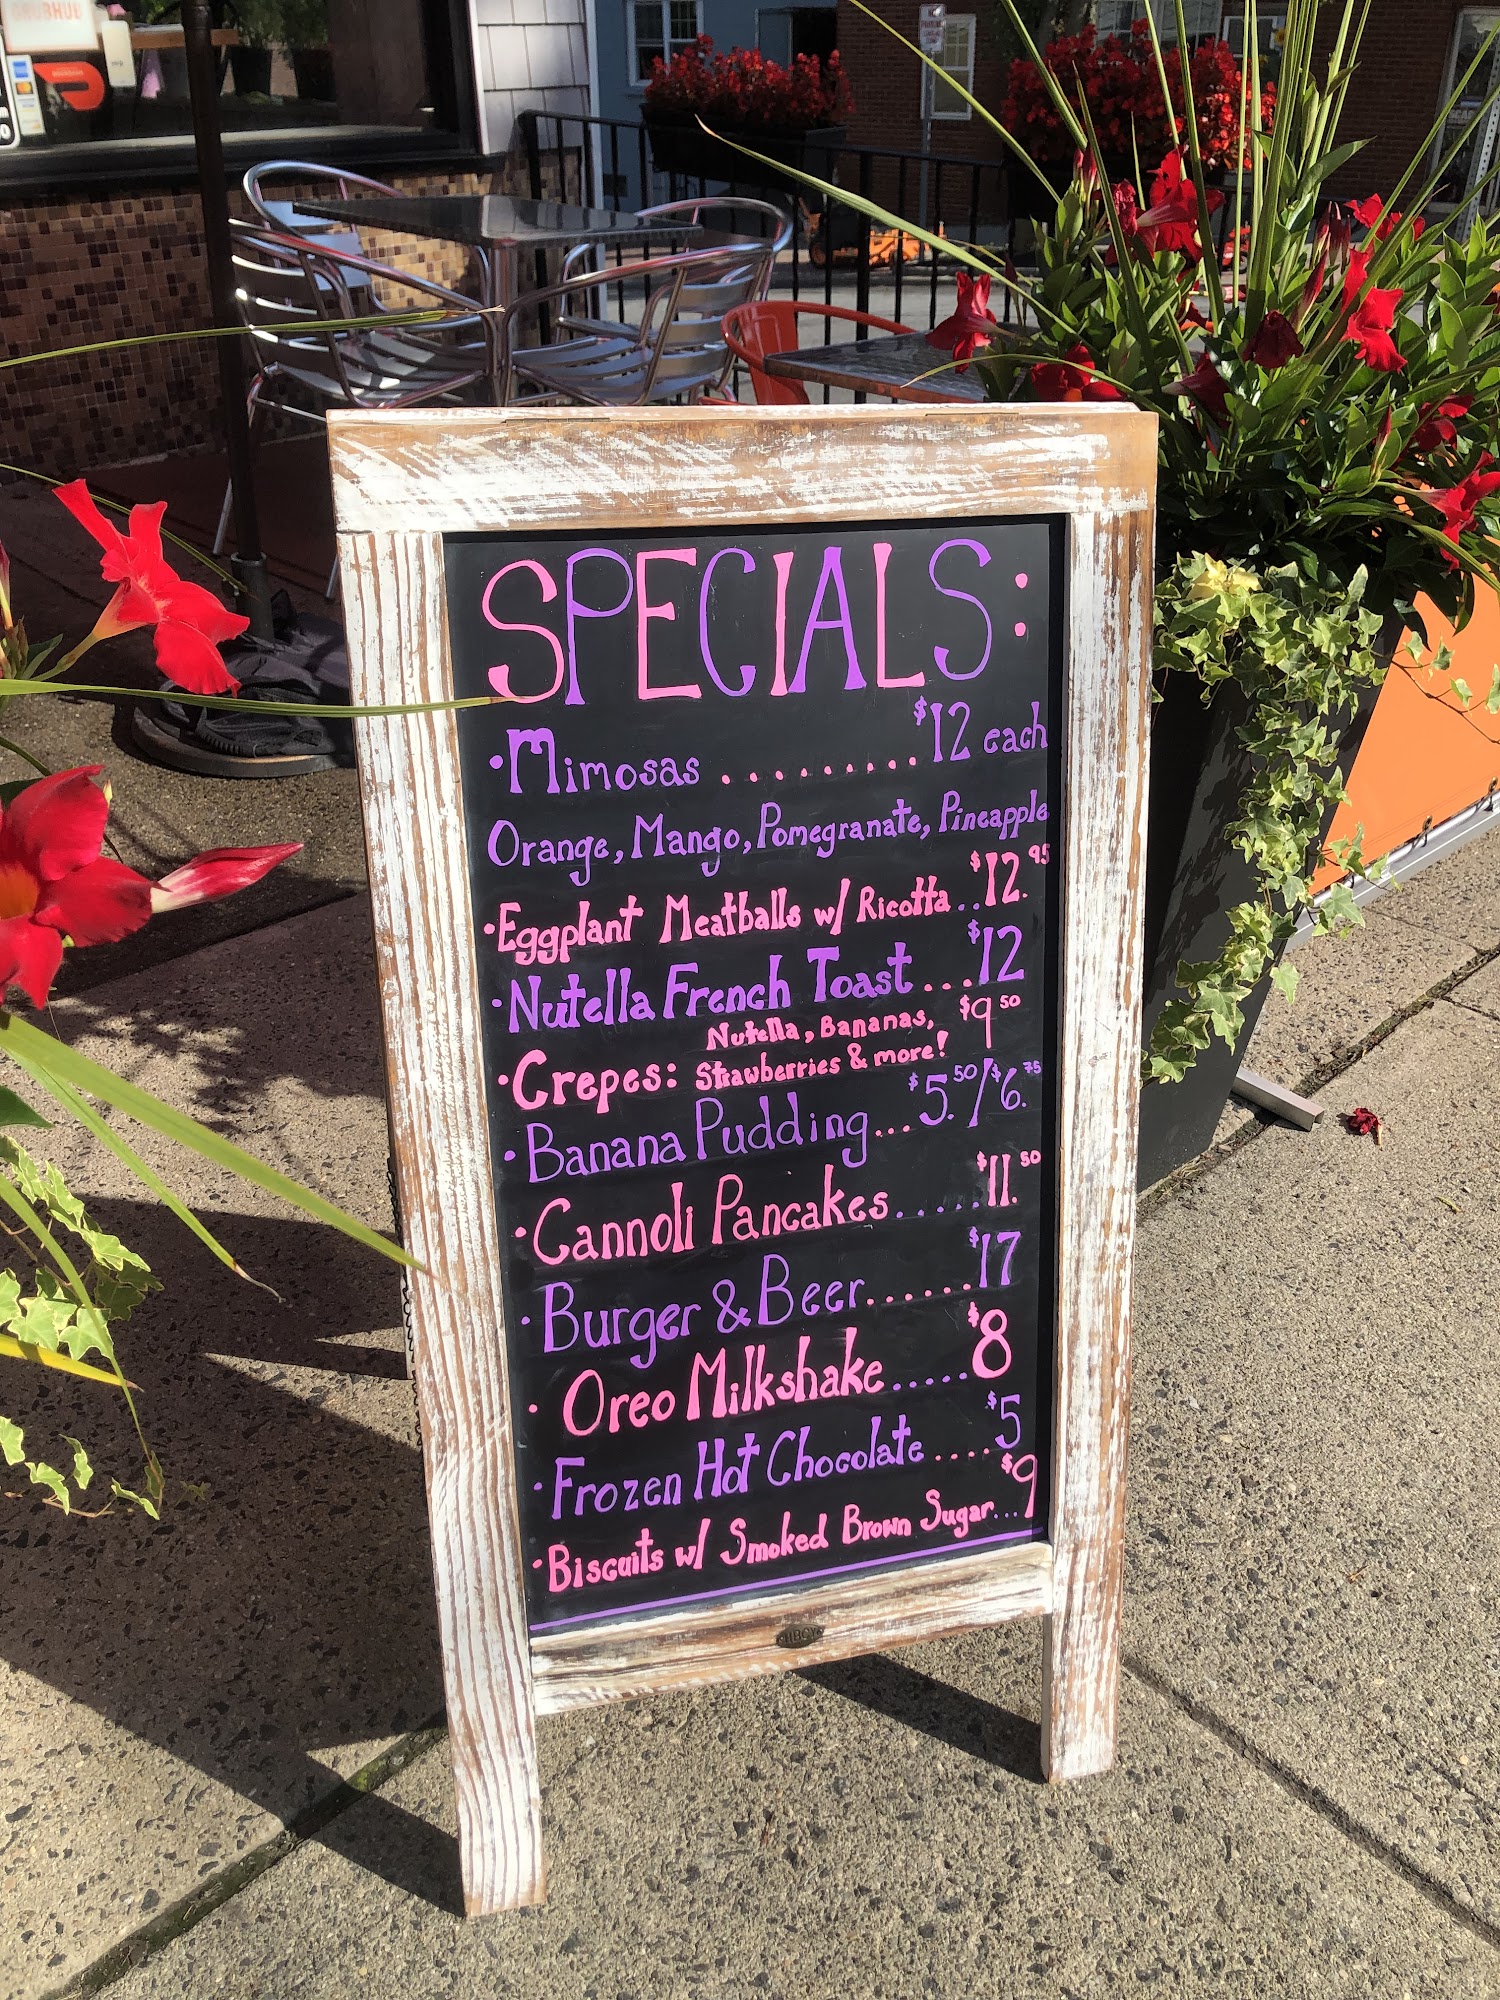 GRUBHUB
SPECIALS:
•Mimosas .........$12 each
Orange, Mango, Pomegranate, Pineapple
•Eggplant Meatballs w/ Ricotta..$12.95
•Nutella French Toast...$12
•Crepes: Nutella, Bananas, $9 50
Strawberries & more!
•Banana Pudding...$5.50/$6.75
•Cannoli Pancakes.....$11.50
•Burger & Beer......$17
•Oreo Milkshake.....$8
•Frozen Hot Chocolate....$5
•Biscuits w/ Smoked Brown Sugar...$9
HBCY